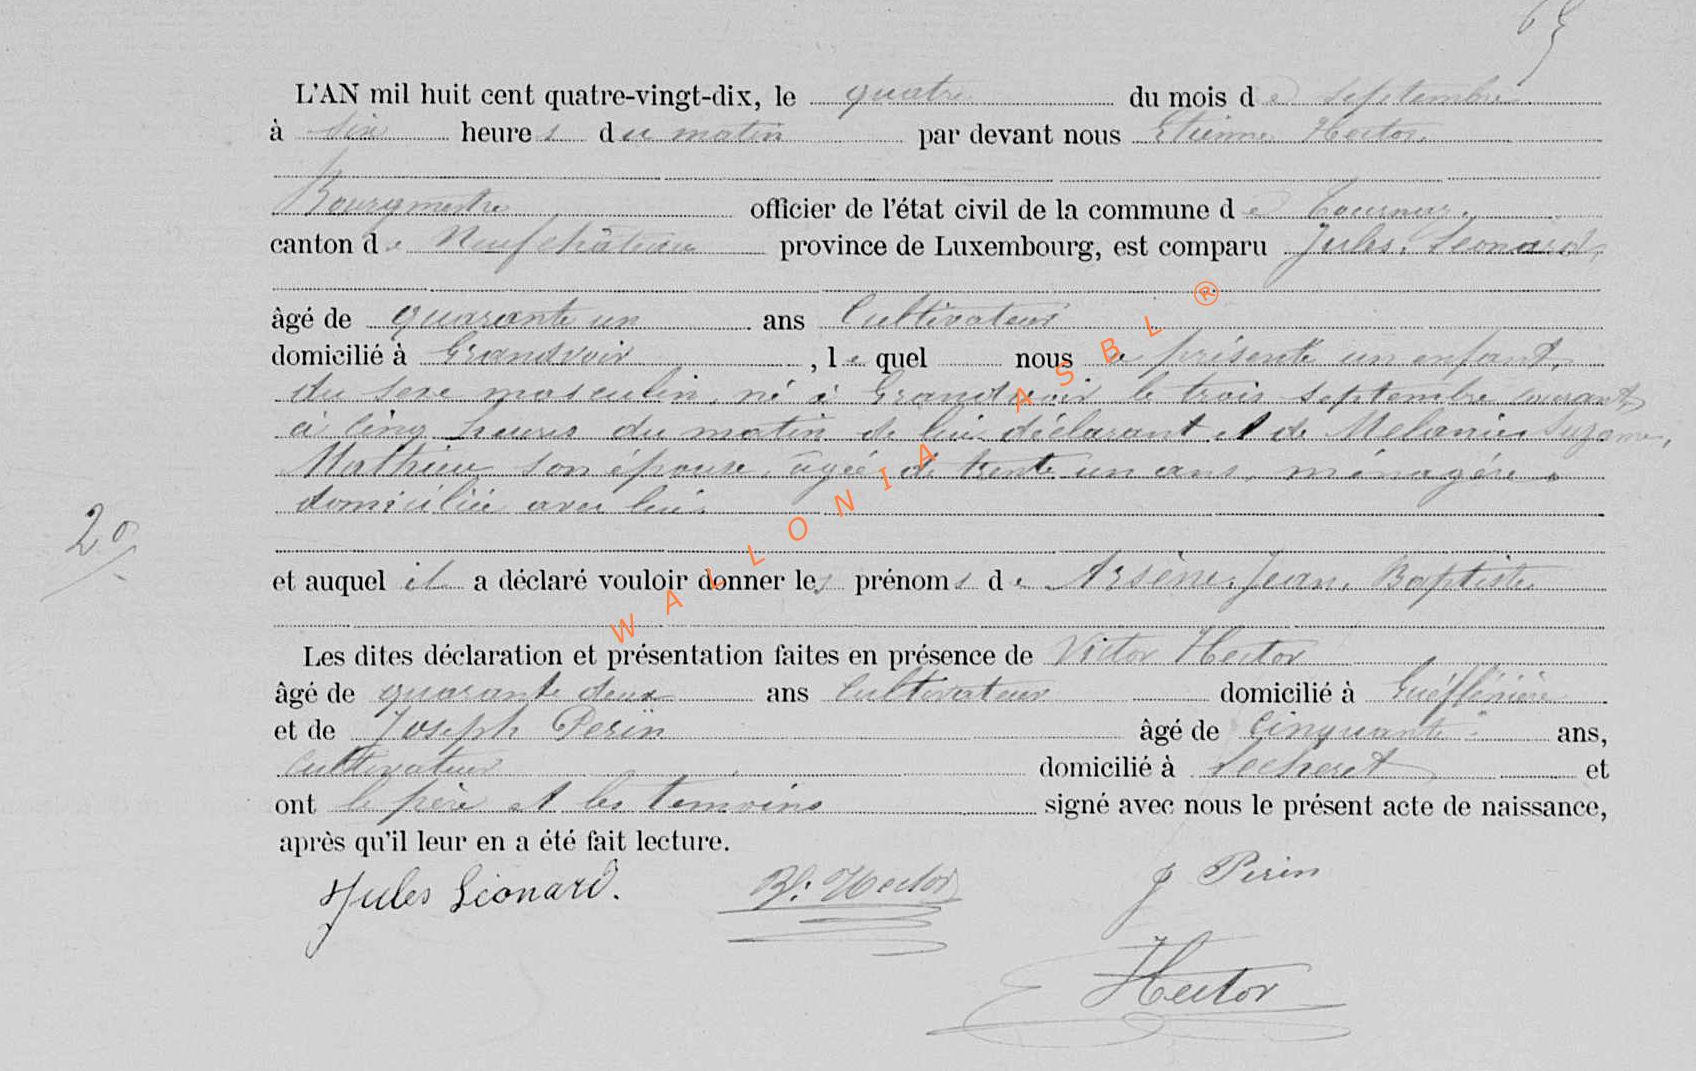 65
L'AN mil huit cent quatre-vingt-dix, le quatre du mois de septembre
à dix heures du matin par devant nous Etienne Hector,
Bourgmestre officier de l'état civil de la commune de Tournay,
canton de Neufchâteau province de Luxembourg, est comparu Jules Léonard,
âgé de quarante un ans Cultivateur
domicilié à Grandvoir, lequel nous a présenté un enfant,
du sexe masculin, né à Grandvoir le trois septembre courant,
à cinq heures du matin de lui déclarant et de Mélanie Suzanne,
Mathieu son épouse, âgée de trente un ans, ménagère,
domiciliée avec lui.
2o
et auquel il a déclaré vouloir donner les prénoms de Arsène, Jean, Baptiste
Les dites déclaration et présentation faites en présence de Victor Hector
âgé de quarante deux ans Cultivateur domicilié à
et de Joseph Perin âgé de Cinquante ans,
cultivateur domicilié à et
ont le père et les temoins signé avec nous le présent acte de naissance,
après qu'il leur en a été fait lecture.
Jules Léonard. Hector J Perin
Hector
WALLONIA ASBL ®